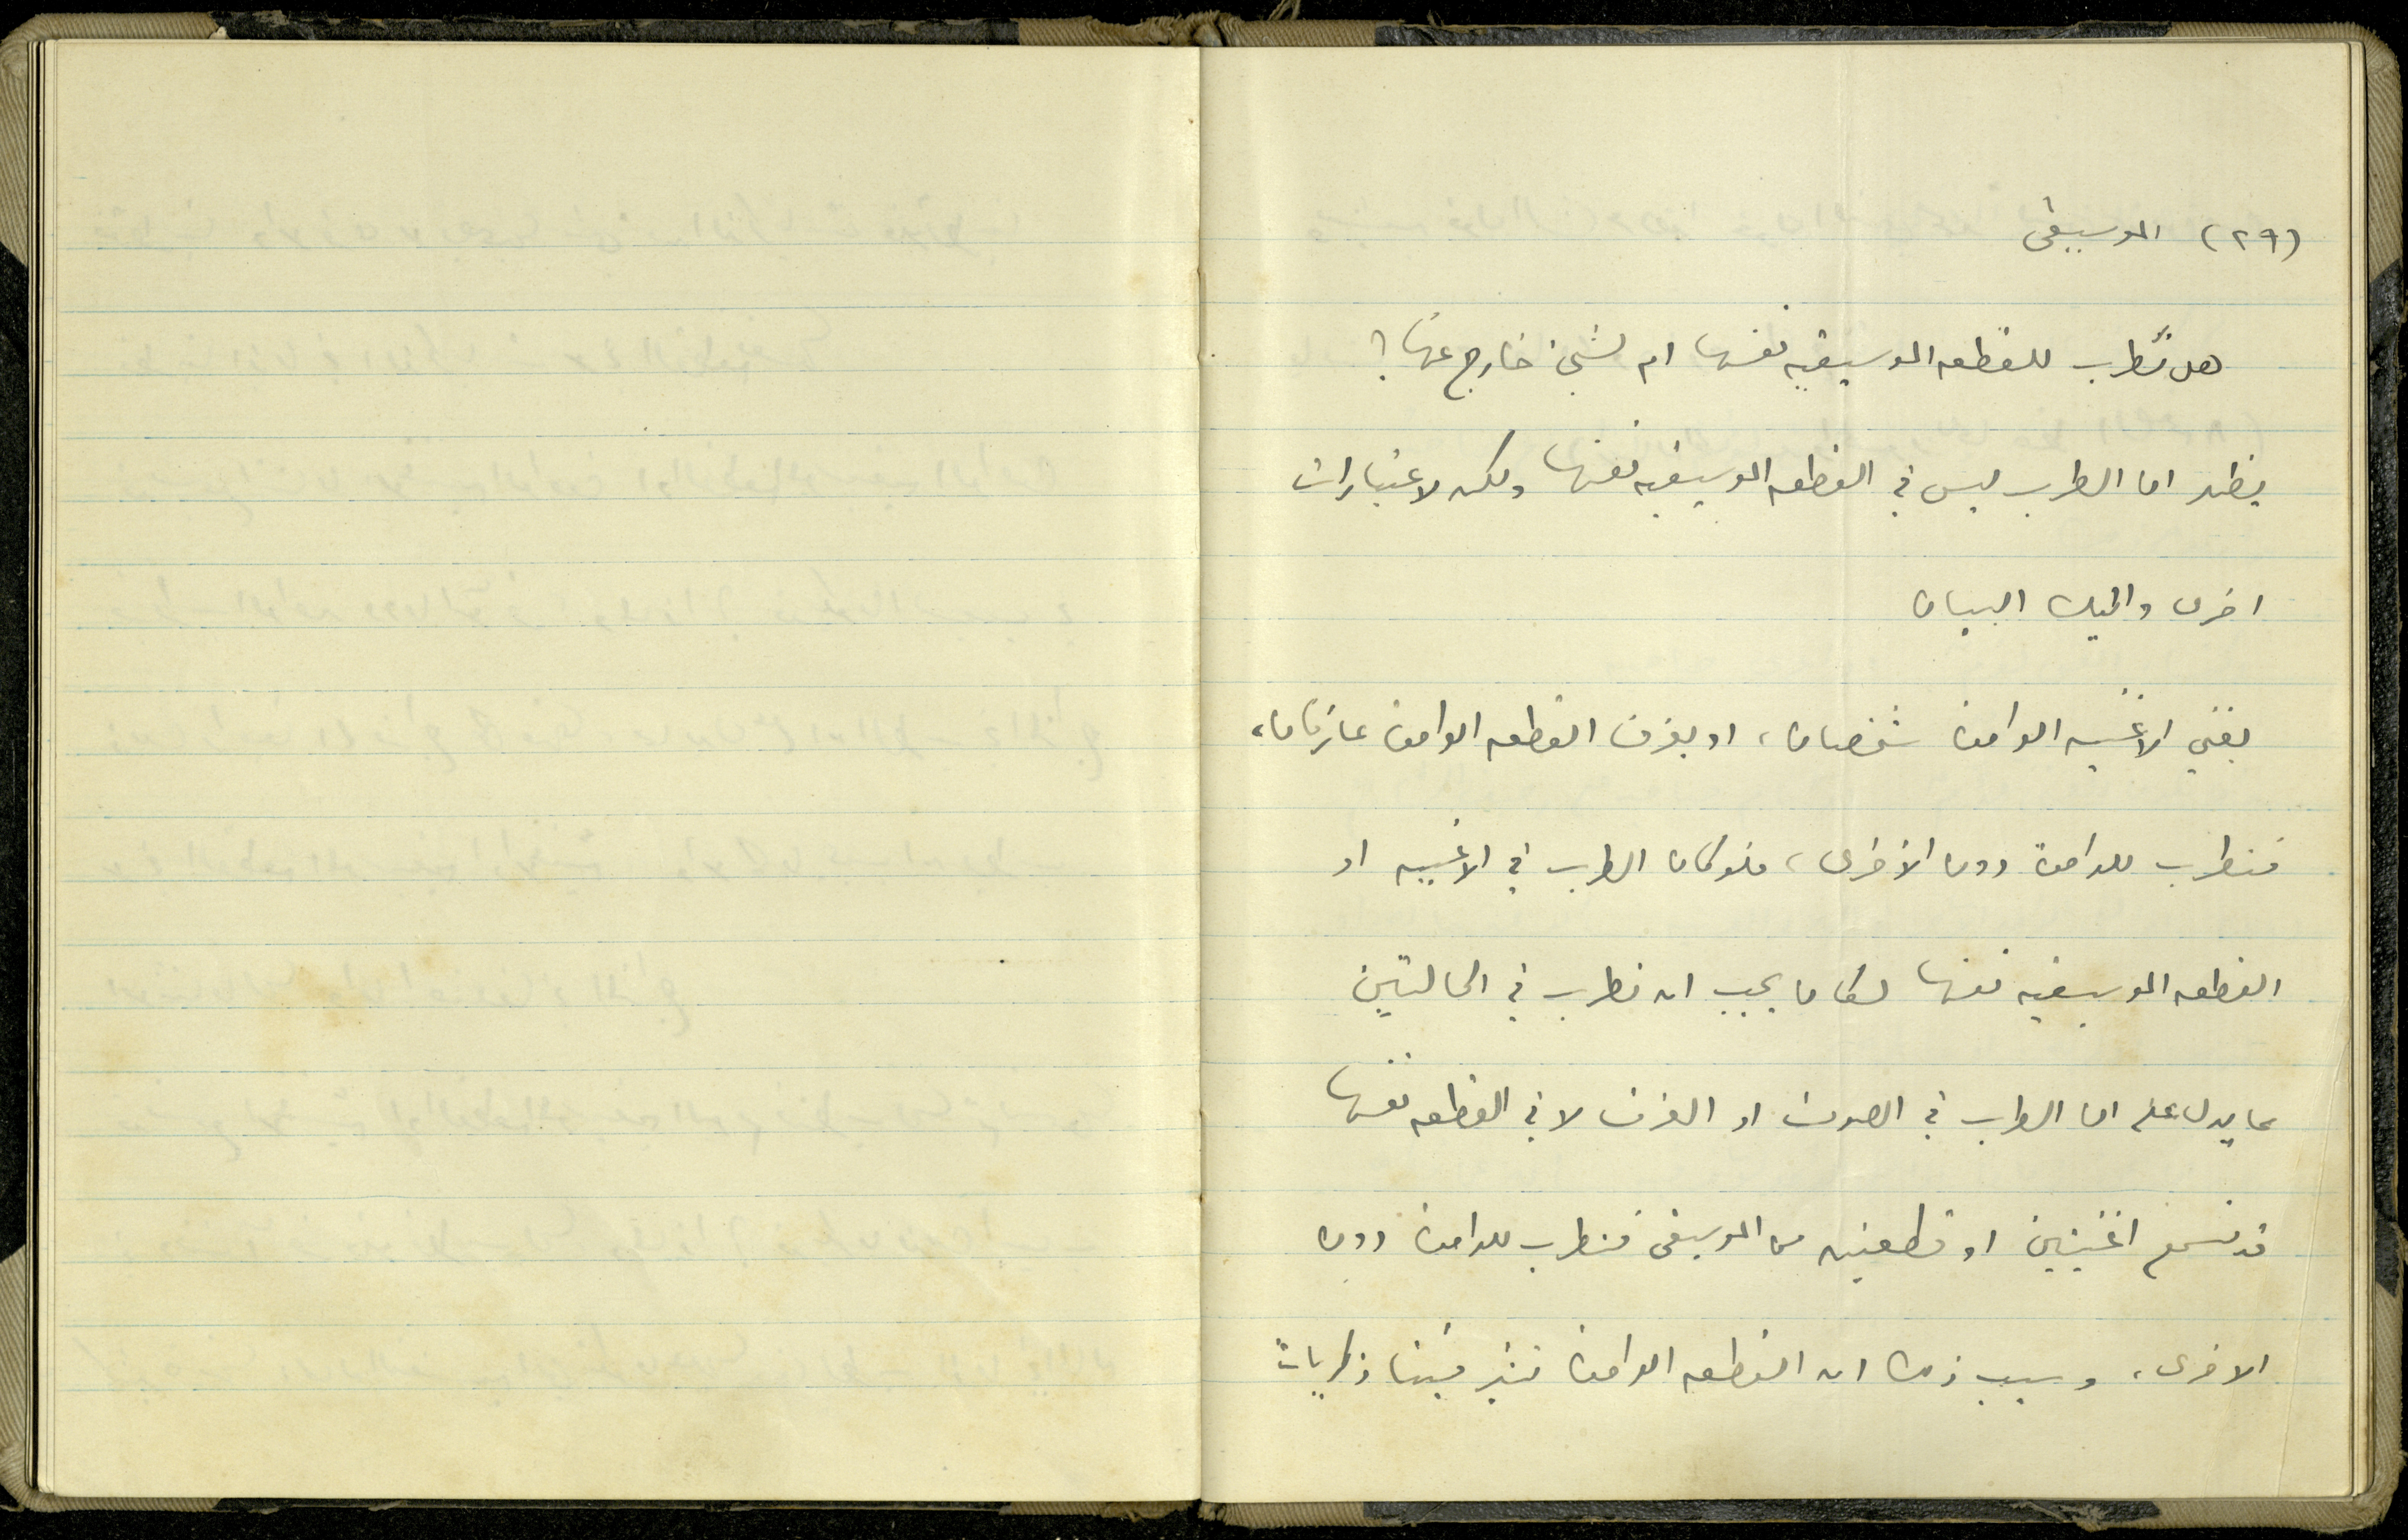 (٢٩) الموسيقى
هل نطرب للقطعه الموسيقيه نفسها ام لشيء خارج عنها؟
يظهر ان الطرب ليس في القطعه الموسيقيه نفسها ولكن لاعتبارات
اخرى واليك البيان
يغني الاغنيه الواحدة شخصان، او يعزف القطعه الواحدة عازفان،
فنطرب للواحدة دون الأخرى، فلو كان الطرب في الاغنيه او
القطعه الموسيقيه نفسها لكان يجب ان نطرب في الحالتين
مما يدل على ان الطرب في الصوت او العزف لا في القطعه نفسها
قد نسمع اغنيتين او قطعتين من الموسيقى فنطرب للواحدة دون
الاخرى، وسبب ذلك ان القطعه الواحدة تثير فينا ذكريات